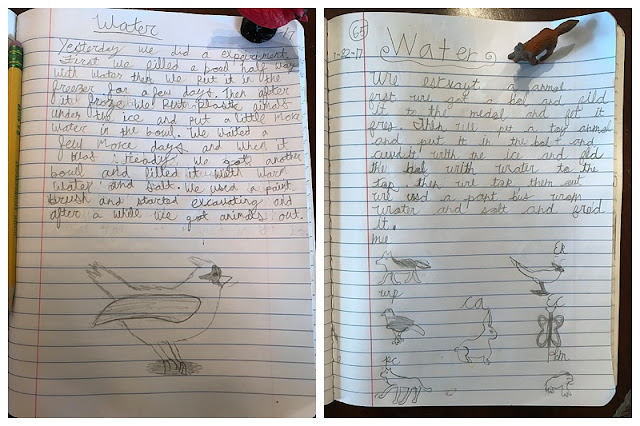 Water
Yesterday we did a experiment
First we filled a bowl half way
with water then we put it in the
freezer for a few days. Then after
it froze we put plastic animals
under the ice and put a little more
water in the bowl. We waited a
few more days and when it
was ready, we got another
bowl and filled it with warm
water and salt. We used a paint
brush and started excavating and
after a while we got animals out.
65
1-22-17
Water
We estxayt a anmel
frst we got a bol and filld
it to the medal and let it
fres. Then we pot a toy anamal
and put it in the bol and
with the ice and fild
the bol with water to the
top then we tok them out
we usd a pant bus wrom
water and solt and fre'd
it.
me